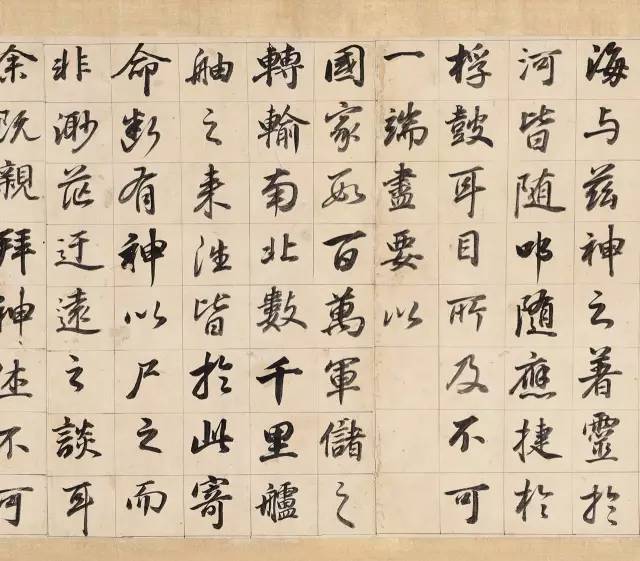 海与茲神之著靈於
河皆随叩随應捷於
桴鼓耳目所及不可
一端盡要以
國家百萬軍儲之
轉輸南北數千里艫
舳之来往皆於此寄
命斷有神以尸之而
非渺茫迂遠之談耳
余既親拜神不可